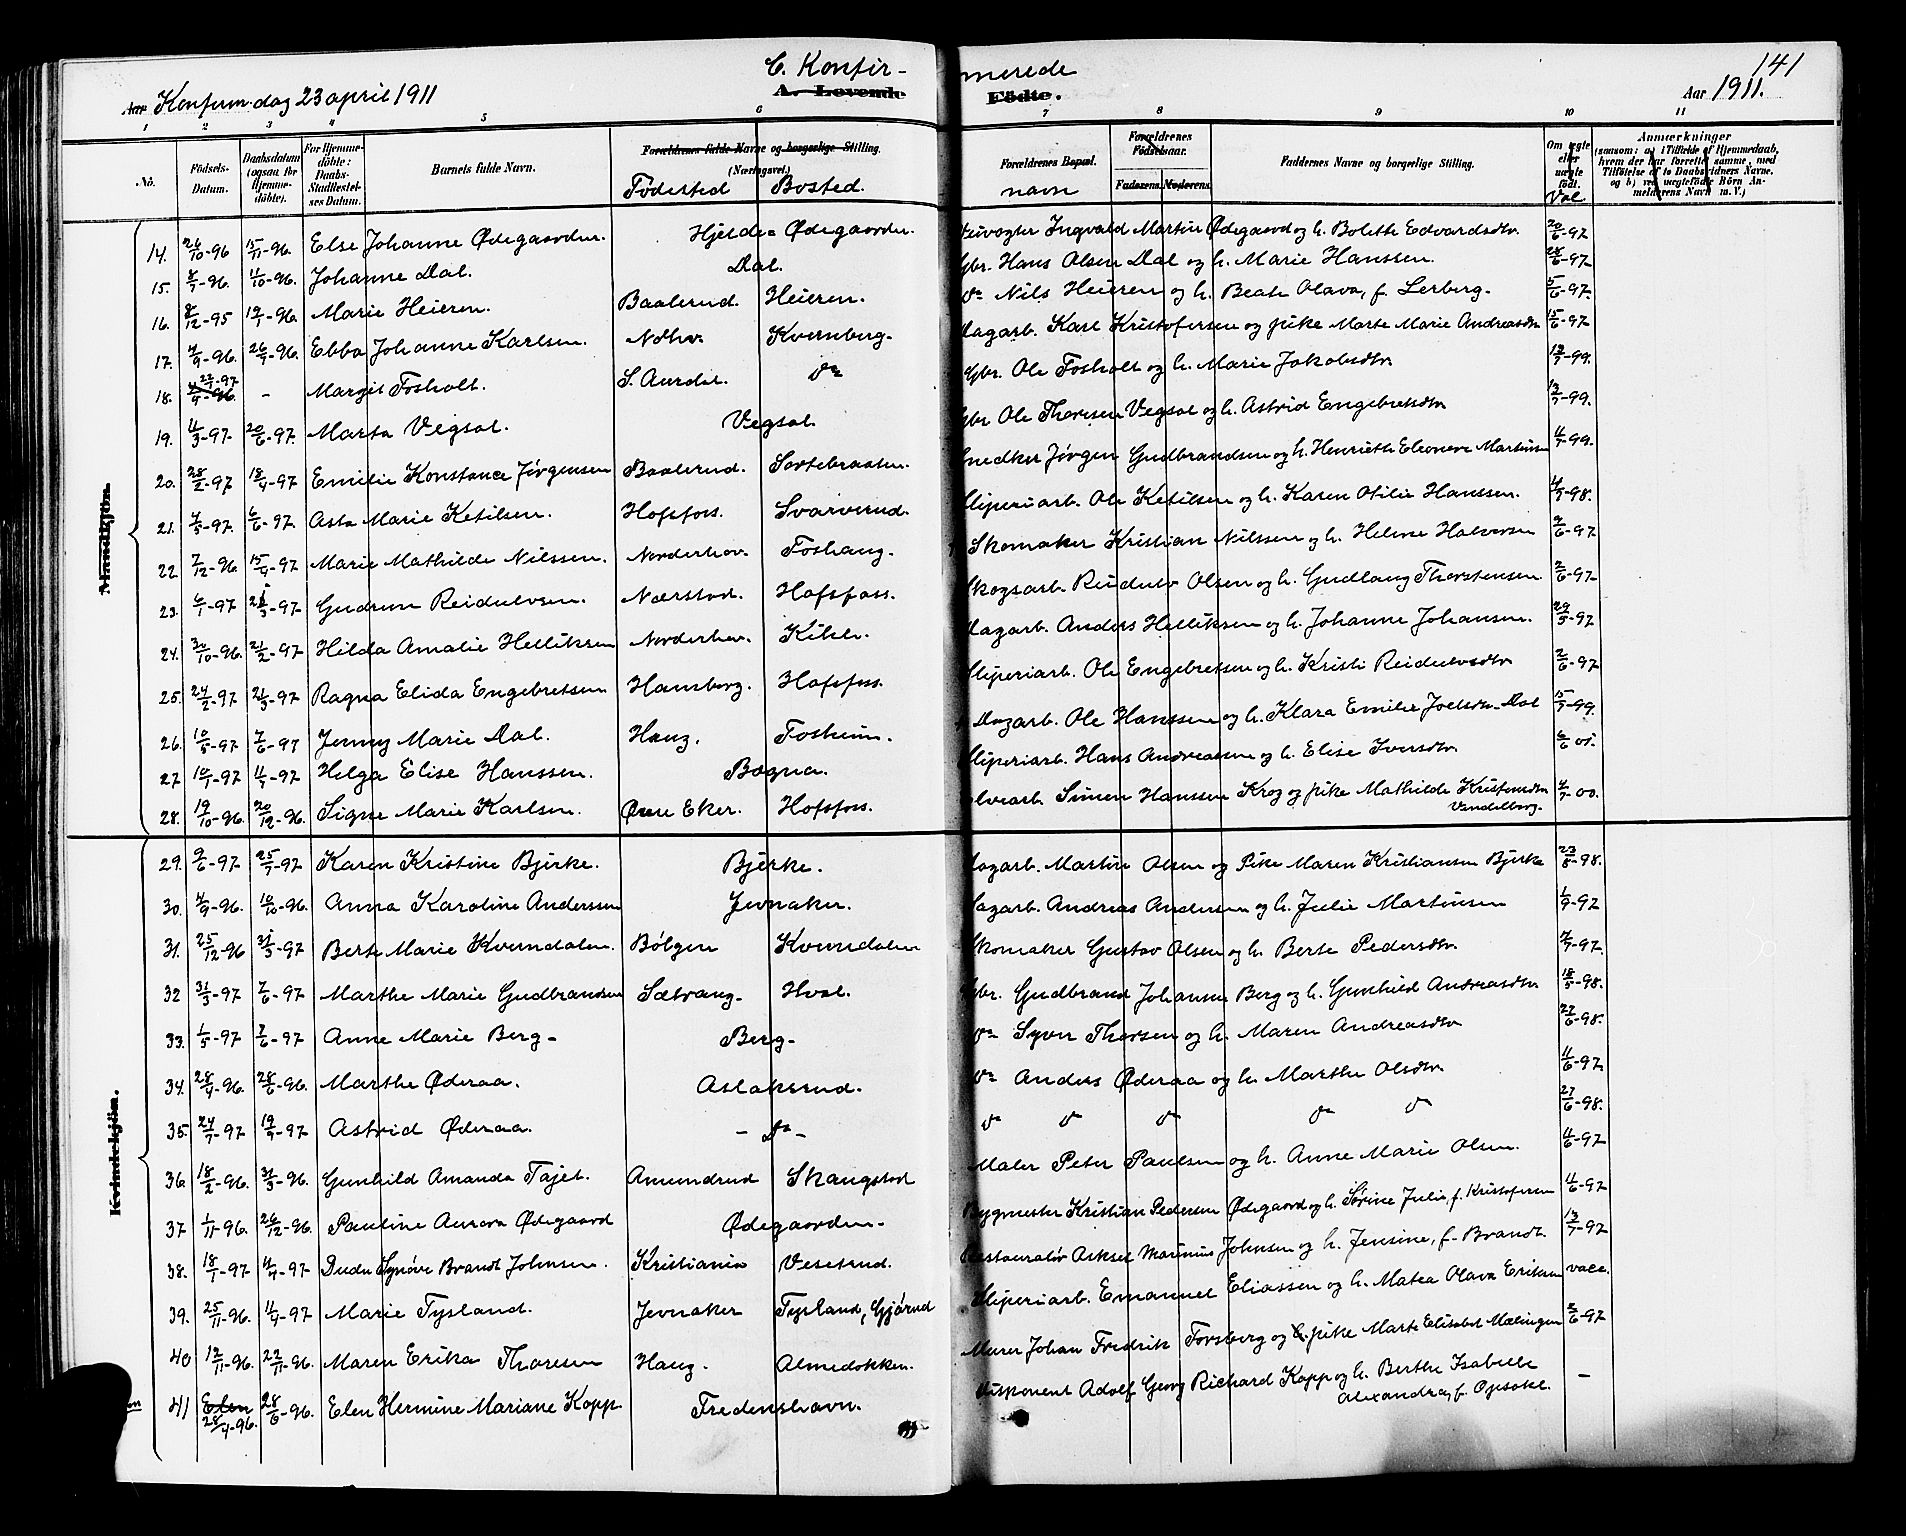 C. Konfir- merede 141
Aar Konfirm.dag 23 april 1911 A. Levende Födte. Aar 1911.
1 2 3 4 5 6 7 8 9 10 11
No. Födsels-Datum. Daabsdatum (ogsaa for Hjemmedöbte). For Hjemmedöbte: Daabs-Stadfæstelses Datum. Barnets fulde Navn. Forældrenes fulde Navne og borgerlige Stilling. (Næringsvei.) Födested Bosted. Forældrenes Bopæl. navn Forældrenes Födselsaar. Faderens. Moderens. Faddernes Navne og borgerlige Stilling. Om ægte eller uægte födt. Val Anmærkninger (saasom: a) i Tilfælde af Hjemmedaab, hvem der har forrettet samme, med Tilföielse af to Daabsvidners Navne, og b) ved uægtefödte Börn Anmelderens Navn m. V.)
Mandkjön.
14. 26/10-96 15/11-96. Else Johanne Ødegaarden. Hjelde- Ødegaarden. Ingvald Martin Ødegaard og h. Bolette Edvardsdtr. 20/6-97
15. 8/7-96. 11/10-96. Johanne Dal. Dal. Gbr. Hans Olsen Dal og h. Marie Hanssen. 28/6-97.
16. 8/12-95 19/1-96. Marie Heieren. Baalerud. Heieren. Do Nils Heieren og h. Beate Olava, f. Lerberg. 5/6-97.
17. 4/9-96. 26/9-96. Ebba Johanne Karlsen. Ndhov. Kvernberg. Dagarb. Karl Kristofersen og pike Marte Marie Andreasdtr 15/6-97
18. 22/1-97 - Margit Fosholt. S. Aurdal. Do Gbr. Ole Fosholt og h. Marie Jakobsdtr 12/7-99.
19. 11/3-97. 20/6-97. Marta Vegsal. Vegsal. Gbr Ole Thoresen Vegsal og h. Astrid Engebretsdtr 13/7-99.
20. 28/2-97 18/4-97 Emilie Konstance Jørgensen Baalerud. Sortebraaten. Snedker Jørgen Gudbrandsen og h. Henriette Eleonora Martinsen 11/7-99.
21. 4/5-97. 6/6-97. Asta Marie Ketilsen. Hofsfos. Svarverud. Sliperiarb. Ole Ketilsen og h. Karen Otilie Hanssen. 4/7-98.
22. 7/12-96. 15/4-97 Marie Mathilde Nilssen. Norderhov. Foshaug. Skomaker Kristian Nilssen og h. Helene Halvorsen 9/6-97
23. 6/1-97 21/3-97. Gudrun Reidulvsen. Nærstad. Hofsfoss. Skogsarb. Reidulv Olsen og h. Gudlaug Thorstensen. 2/6-97
24. 30/10-96. 21/2-97 Hilda Amalie Helliksen Norderhov. Kihle. Dagarb. Anders Helliksen og h. Johanne Johansen. 29/5-97
25. 24/2-97 21/3-97 Ragna Elida Engebretsen Hansborg. Hofsfos. Sliperiarb. Ole Engebretsen og h. Kristi Reidulvsdtr 2/6-97
26. 10/5-97. 7/6-97 Jenny Marie Dal. Haug. Fosheim. Dagarb. Ole Hanssen og h. Klara Emilie Joelsdtr. Dal 15/7-99.
27. 10/1-97 11/7-97 Helga Elise Hanssen. Bagna. Sliperiarb. Hans Andreassen og h. Elise Iversdtr 6/6 01.
28. 19/10-96. 20/12-96. Signe Marie Karlsen. Øvre Eker. Hofsfos. Simen Hanssen Krog og pike Mathilde Kristensdtr 4/7-00.
Vendelborg.
Kvindekjön.
29. 9/6-97 25/7-97 Karen Kristine Bjerke. Bjerke. Dagarb. Martin Olsen og Pike Maren Kristiansen Bjerke 23/8-98.
30. 4/9-96. 10/10-96. Anna Karoline Anderssen Jevnaker. Dagarb. Andreas Andersen og h. Julie Martinsen 1/9-97
31. 25/12-96 31/3-97 Berte Marie Kverndalen. Bølgen Kverndalen Skomaker Gustav Olsen og h. Berte Pedersdtr 7/7-97.
32 31/3-97 7/6-97 Marthe Marie Gudbrandsen Sætrang. Hval. Gbr. Gudbrand Johansen Berg og h. Gunhild Andreasdtr 18/5-98.
33. 1/5-97 7/6-97 Anne Marie Berg- Berg- Do Syver Thorsen og h. Maren Andreasdtr 27/6-98.
34. 28/4-96. 28/6-96. Marthe Øderaa. Aslaksrud. Do Anders Øderaa og h. Marthe Olsdtr 11/6-97.
35. 24/7-97 19/9-97 Astrid Øderaa. - Do - Do Do Do Do Do 27/6-98.
36. 18/2-96. 31/3-96. Gunhild Amanda Tajet. Amundrud Skaugstad Maler Peter Paulsen og h. Anne Marie Olsen. 11/6-97
37 1/11-96. 26/12-96. Pauline Aurora Ødegaard Ødegaarden- Bygmester Kristian Pedersen Ødegaard og h. Sørine Julie, f. Kristofersen 11/6-97
38. 18/1-97 11/4-97 Synöve Brandt Johnsen. Kristiania Veserud. Restauratör Aksel Marinius Johnsen og h. Jensine, f. Brandt. 13/7-97
39. 25/11-96. 11/4-97 Marie Tysland. Jevnaker Tysland, Gjørud Sliperiarb. Emanuel Eliassen og h. Matea Olava Eriksen vacc.
40 12/11-96. 22/11-96. Maren Erika Thoresen Haug. Almedokken. Murer Johan Fredrik Forsberg og h. pike Marte Elisabet Mælingen 5/6-97
41 Elen 28/4-96. 28/6-96. Elen Hermine Mariane Kopp Fredenshavn. Disponent Adolf Georg Richard Kopp og h. Berthe Isabelle -
Alexandra, f. Opsahl.